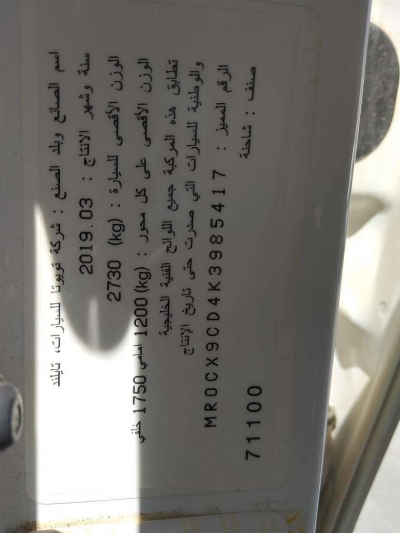 اسم الصانع وبلد الصنع : شركة تويوتا للسيارات، تايلند
سنة وشهر الانتاج : 2019.03
الوزن الأقصى للسيارة : (kg) 2730
الوزن الأقصى على كل محور : (kg) 1200 امامي 1750 خلفي
تطابق هذه المركبة جميع اللوائح الفنية الخليجية
والوطنية للسيارات التي صدرت حتى تاريخ الإنتاج
الرقم المميز : MR0CX9CD4K3985417
صنف : شاحنة
71100